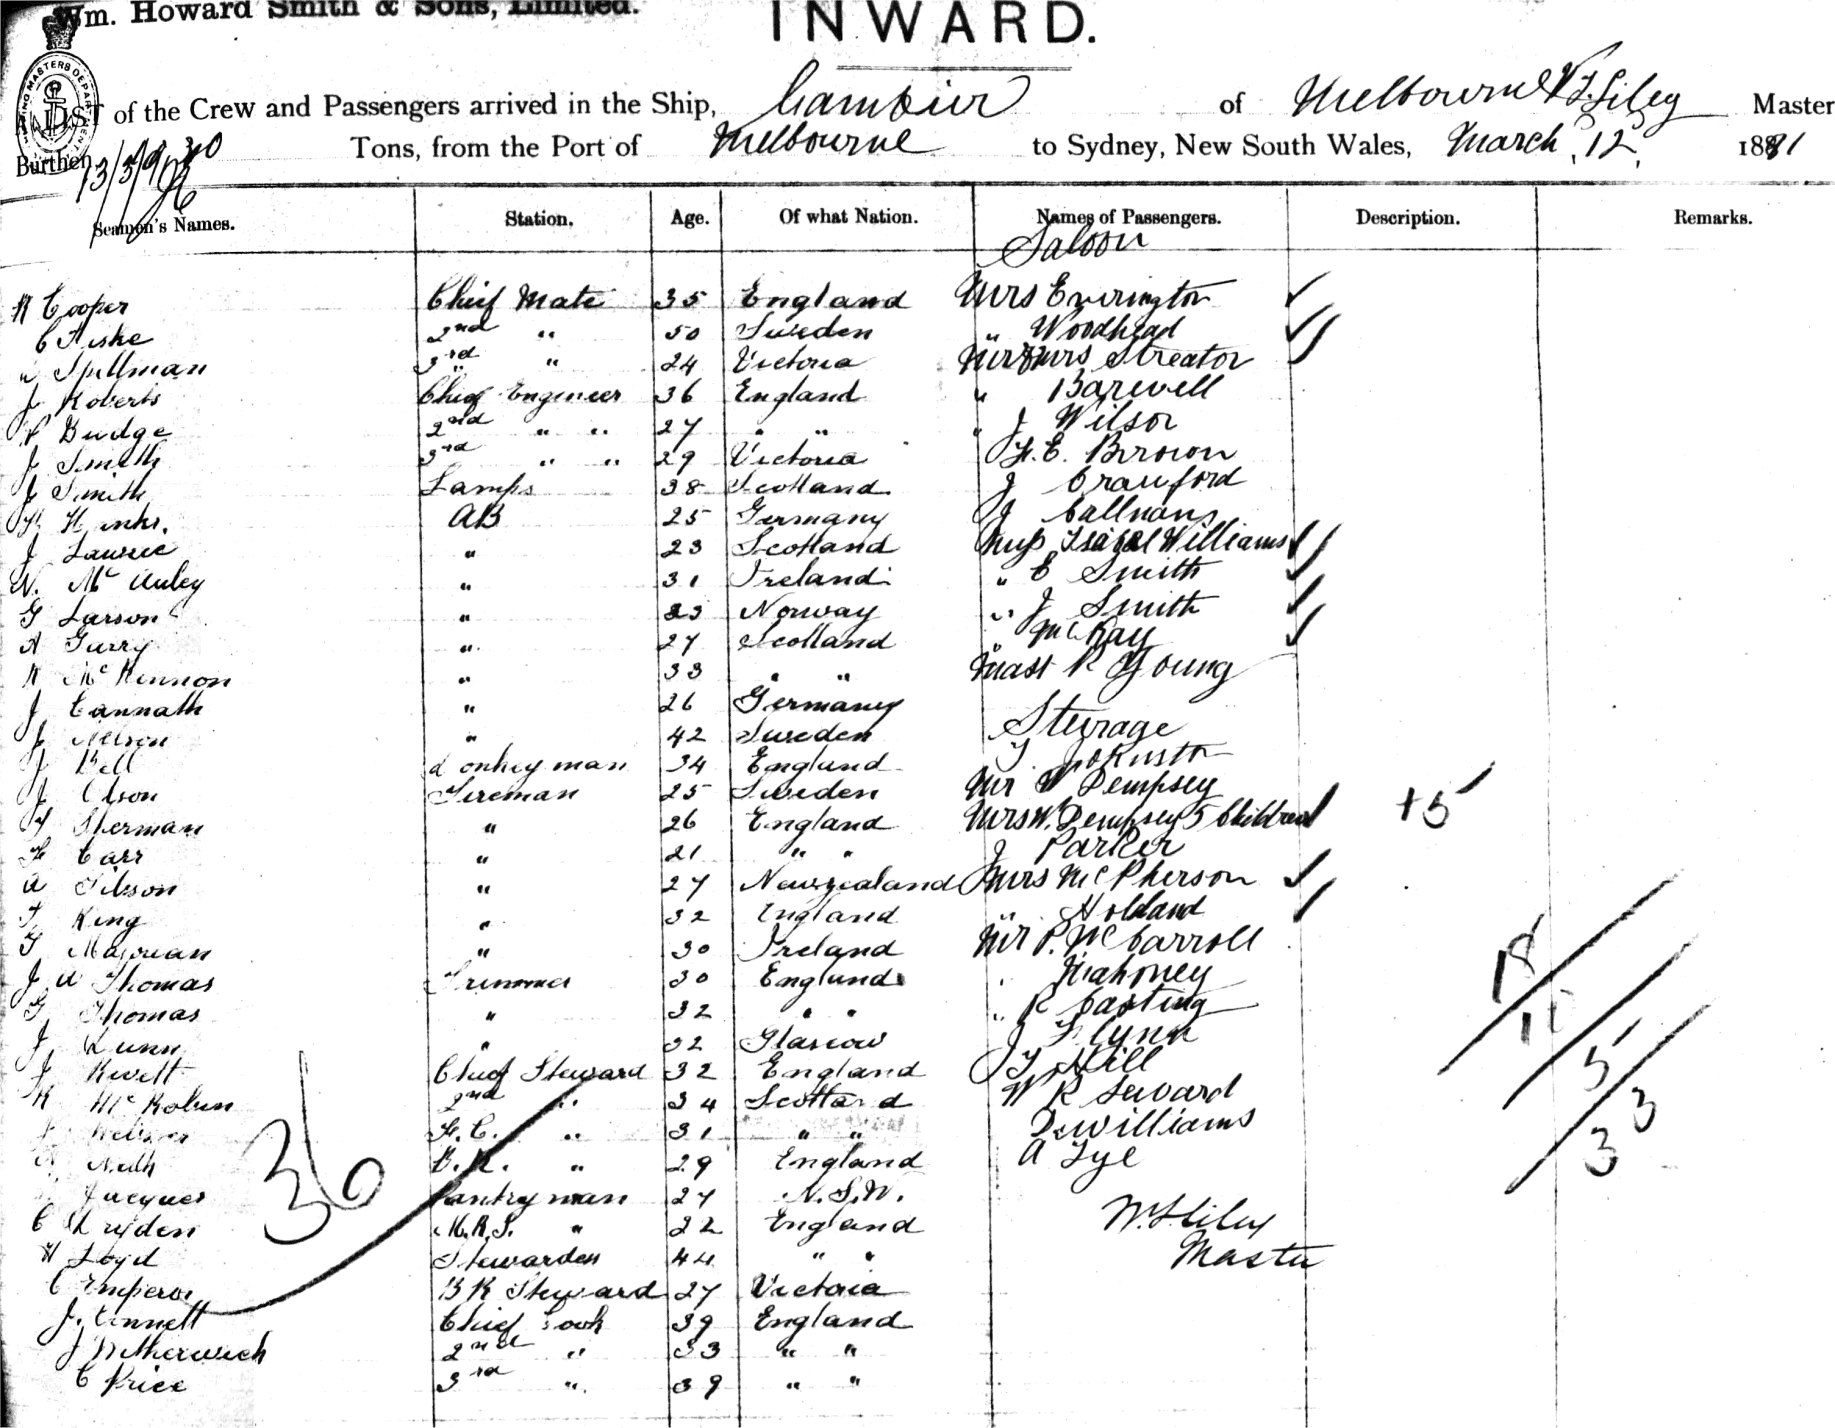 Wm. Howard Smith & Sons, Limited.
INWARD.
A LIST of the Crew and Passengers arrived in the Ship, Cambier of Melbourne W.F. Liley Master
Burthen Tons, from the Port of Melbourne to Sydney, New South Wales, March 12, 1891
Seamen's Names. Station. Age. Of what Nation. Names of Passengers. Description. Remarks.
Saloon
H Cooper Chief Mate 35 England Mrs Everington
C Fiske 2nd " 50 Sweden " Woodhead
Spillman 3rd " 24 Victoria Mr & Mrs Streator
J Roberts Chief Engineer 36 England " Barwell
P Budge 2nd " " 27 " " " J Wilson
J Smith 3rd " " 29 Victoria H. E. Brown
J Smith Lamps 38 Scotland J Crawford
H AB 25 Germany J Callnans
J Lawrie " 23 Scotland Miss Isabel Williams
N. McAuley " 31 Ireland " E Smith
G Larson " 23 Norway " J Smith
A Garry " 27 Scotland " McKay
A McKinnon " 33 " " Mast R Young
J Cannath " 26 Germany
Steerage
J Nelson " 42 Sweden
J Bell Donkeyman 34 England T Johnston
J Olson Fireman 25 Sweden Mr W Dempsey
Sherman " 26 England Mrs W. Dempsey 5 Children +5
H Carr " 21 " " J Parker
A Gibson " 27 Newzealand Mrs McPherson
T King " 32 England " Holland
T " 30 Ireland Mr P. McCarroll
J W Thomas Trimmer 30 England " Mahoney
G Thomas " 32 " " " R Casting
J Lunn " 32 Glascow J Flynn
J Kevett Chief Steward 32 England T Hill
R 2nd " 34 Scotland W R Seward
F. C. " 31 " " D Williams
B. R. " 29 England A Tye
Jacques Pantryman 27 N.S.W.
C Dryden M.R.S. " 22 England W.F. Liley
H Loyd Stewardess 44 " " Master
C Emperor B R Steward 27 Victoria
J. Ennett Chief Cook 39 England
J 2nd " 33 " "
C Price 3rd " 39 " "
36
18
11
5
3
3